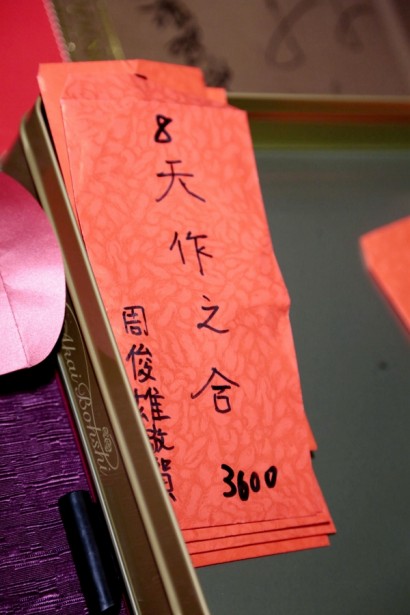 8
天作之合
周俊雄敬賀
3600